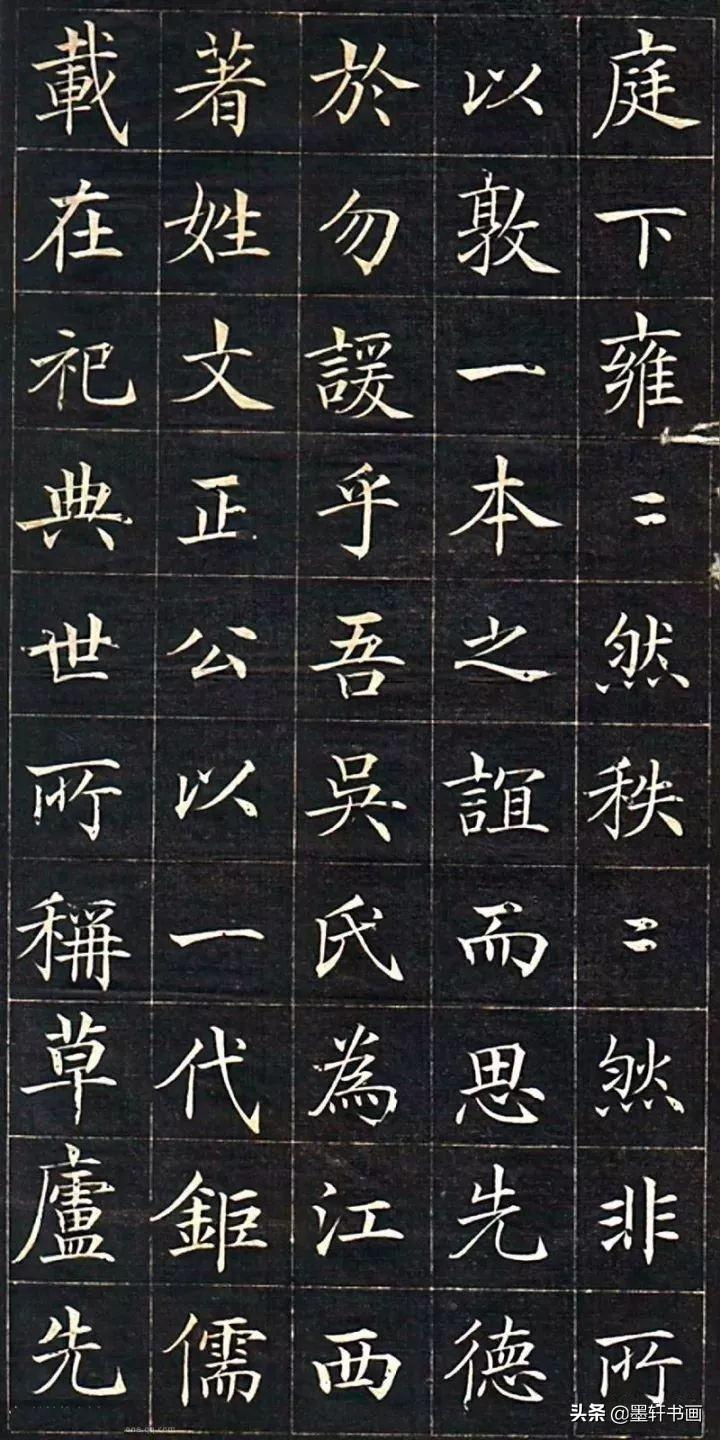 庭下雍〻然秩〻然非所
以敦一本之誼而思先德
於勿諼乎吾吳氏為江西
著姓文正公以一代鉅儒
載在祀典世所稱草廬先
头条@墨轩书画